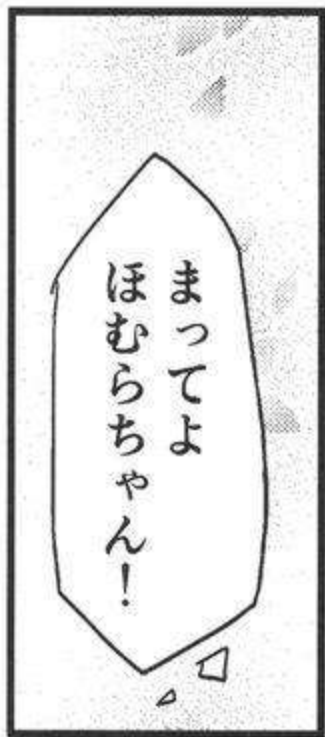 まってよ
ほむらちゃん!